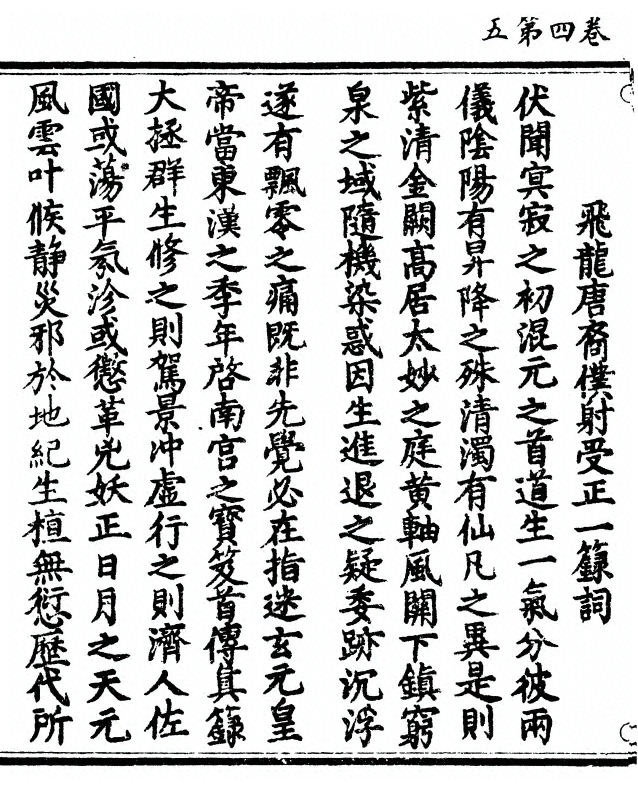 卷四第五
飛龍唐裔僕射受正一籙詞
伏聞㝠寂之初混元之首道生一氣分彼兩
儀陰陽有昇降之殊清濁有仙凡之異是則
紫清金闕髙居太妙之庭黄軸風關下鎮窮
泉之域隨機染惑因生進退之疑委跡沉浮
遂有飄零之痛既非先覺必在指迷玄元皇
帝當東漢之季年啓南宫之寶笈首傳真籙
大拯群生修之則駕景沖虚行之則濟人佐
國或蕩平氛沴或懲革兇妖正日月之天元
風雲叶候静災邪於地紀生植無愆歷代所